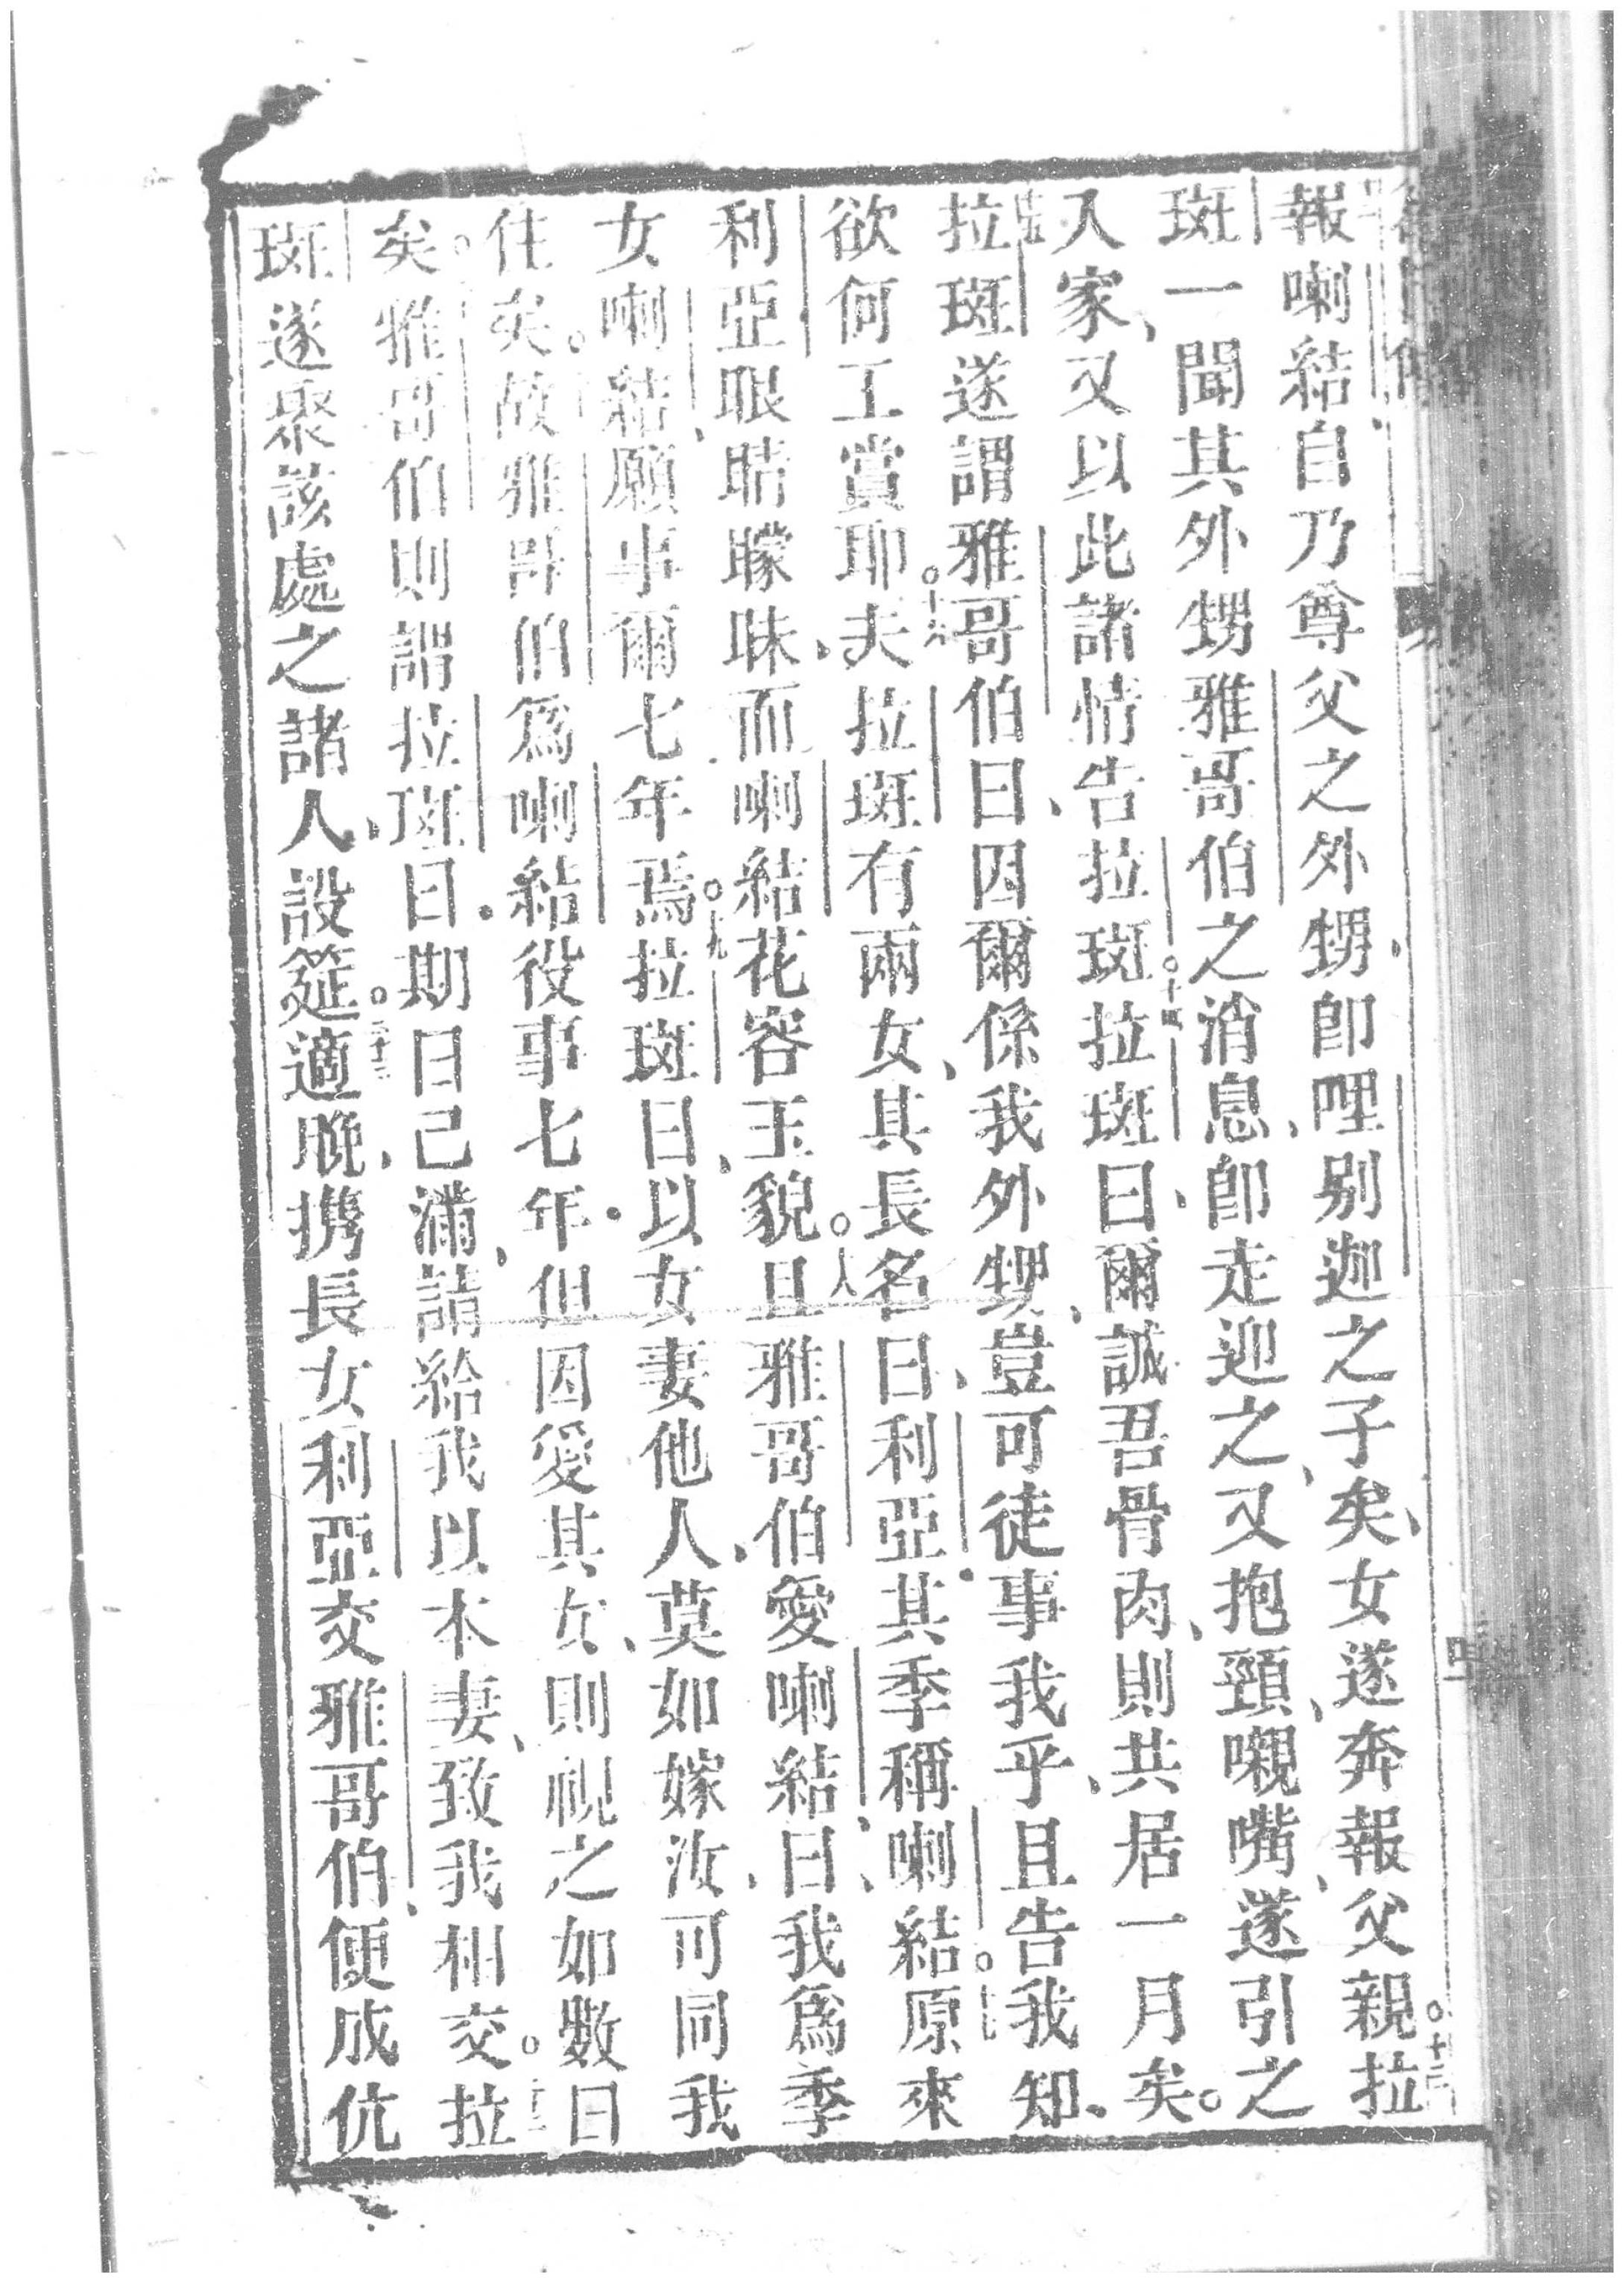 報喇結自乃尊父之外甥、卽哩別迦之子矣、女遂奔報父親。十三拉
斑一聞其外甥雅哥伯之消息、卽走迎之、又抱頸、嚫嘴、遂引之
入家、又以此諸情告拉斑。十四拉斑曰、爾誠吾骨肉、則共居一月矣。
拉斑遂謂雅哥伯曰、因爾係我外甥、豈可徒事我乎、且告我知、
欲何工賞耶。十六夫拉斑有兩女、其長名曰、利亞、其季稱、喇結。十七原來
利亞眼睛矇昧、而喇結花容玉貌。十八且雅哥伯愛喇結、曰、我爲季
女喇結、願事爾七年焉。十九拉斑曰、以女妻他人、莫如嫁汝、可同我
住矣。故雅哥伯爲喇結役事七年、但因愛其女、則視之如數日
矣。雅哥伯則謂拉斑曰、期日已滿、請給我以本妻、致我相交。二十二拉
斑遂聚該處之諸人、設筵。二十三適晚、携長女利亞交雅哥伯、便成伉